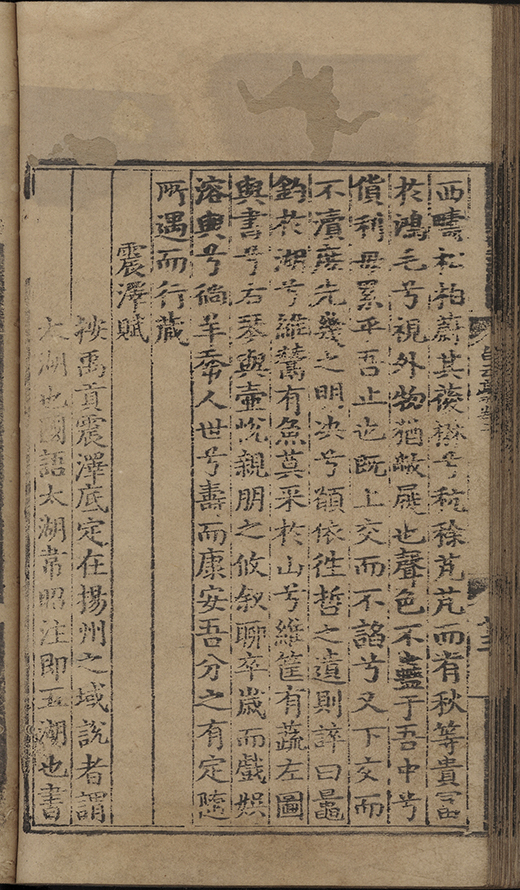 西疇松柏蔚其後襟兮秔稌芃芃而有秋等貴富
於鴻毛兮視外物猶敝屣也聲色不蠱于吾中兮
貨利毋累乎吾止也既上交而不諂兮又下交而
不瀆庶先幾之明決兮顧依徃哲之遺則誶曰鼂
釣於湖兮維鱮有魚莫采於山兮維筐有蔬左圖
與書兮右琴與壺悅親朋之攸叙聊卒歲而戲娛
溶與兮徜羊喬人世兮壽而康安吾分之有定隨
所遇而行藏
震澤賦
按禹貢震澤底定在揚州之域說者謂
太湖也國語太湖韋昭注即五湖也書